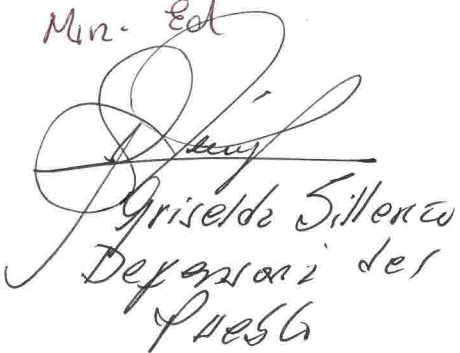 Min. Ed
Griselda Sillenzo
Defensoria del
Pueblo